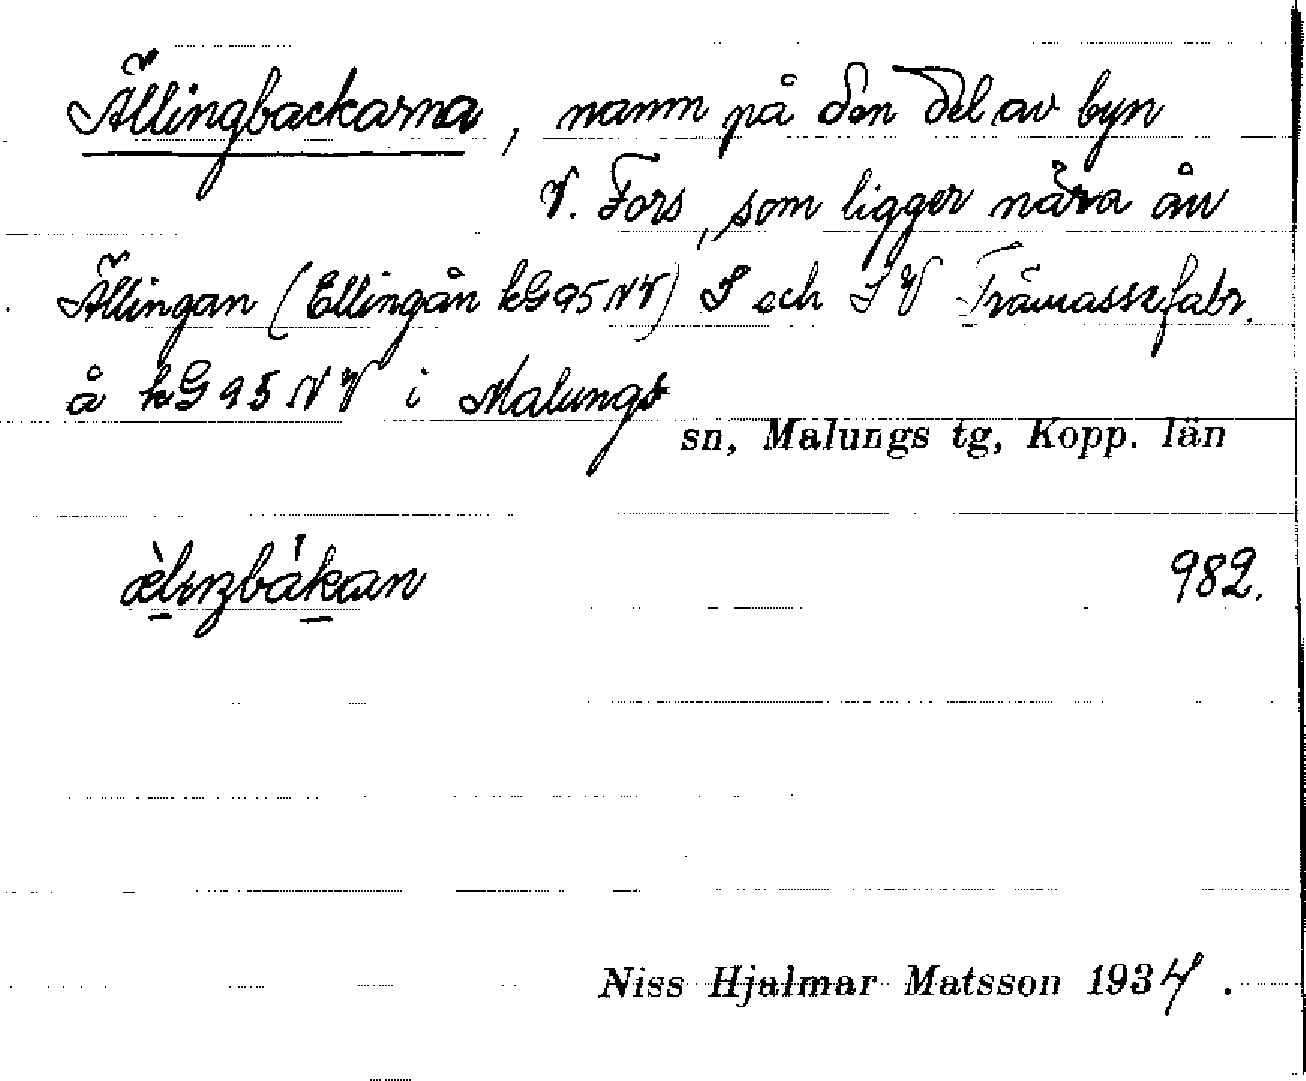 Ällingbackarna, namn på den del av byn
V. Fors, som ligger nära ån
Ällingan (Ellingån kG95NV) S och SV Trämassefabr.
å kG95NV i Malungs
sn, Malungs tg, Kopp. län
æ̀lıŋbákan 982.
Niss Hjalmar Matsson 1934.